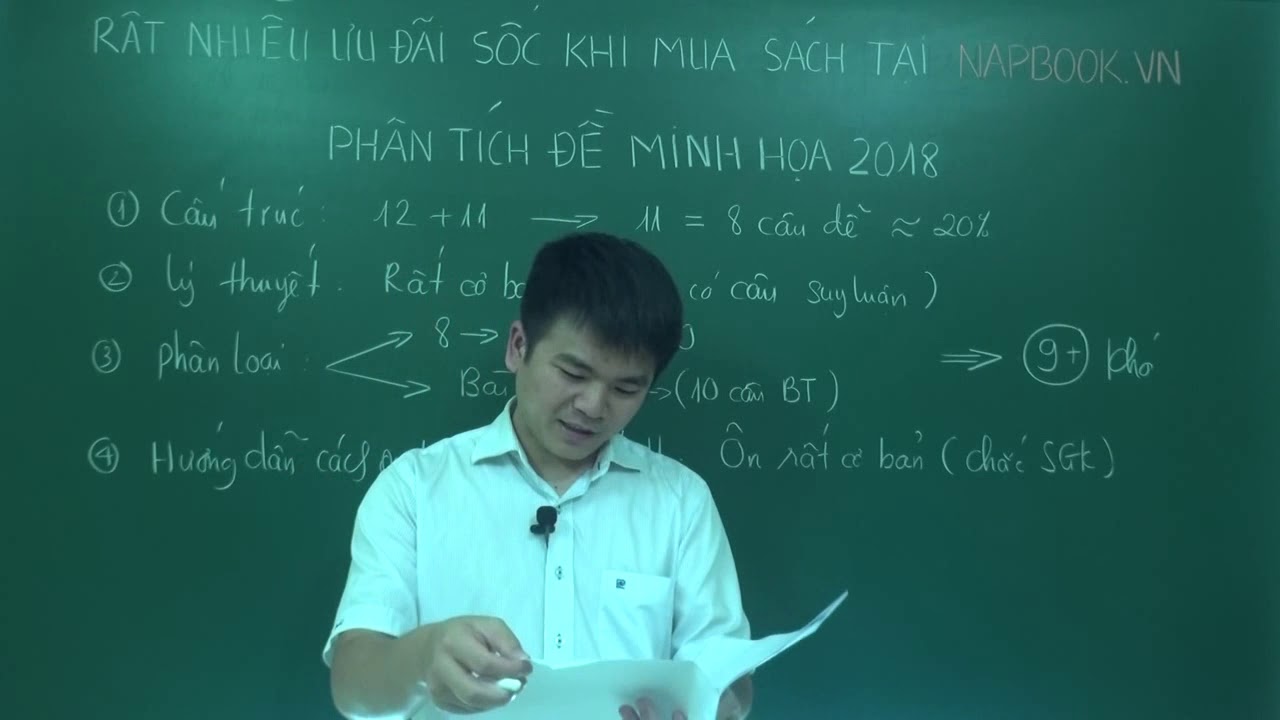 RẤT NHIỀU ƯU ĐÃI SỐC KHI MUA SÁCH TẠI NAPBOOK.VN
PHÂN TÍCH ĐỀ MINH HỌA 2018
① Cấu trúc: 12 + 11 → 11 = 8 câu dễ ≈ 20%
② lý thuyết. Rất cơ có câu suy luận)
③ phân loại: 8 → ⇒ 9+ phá
→ (10 câu BT)
④ Hướng dẫn cách Ôn rất cơ bản (chắc SGK)